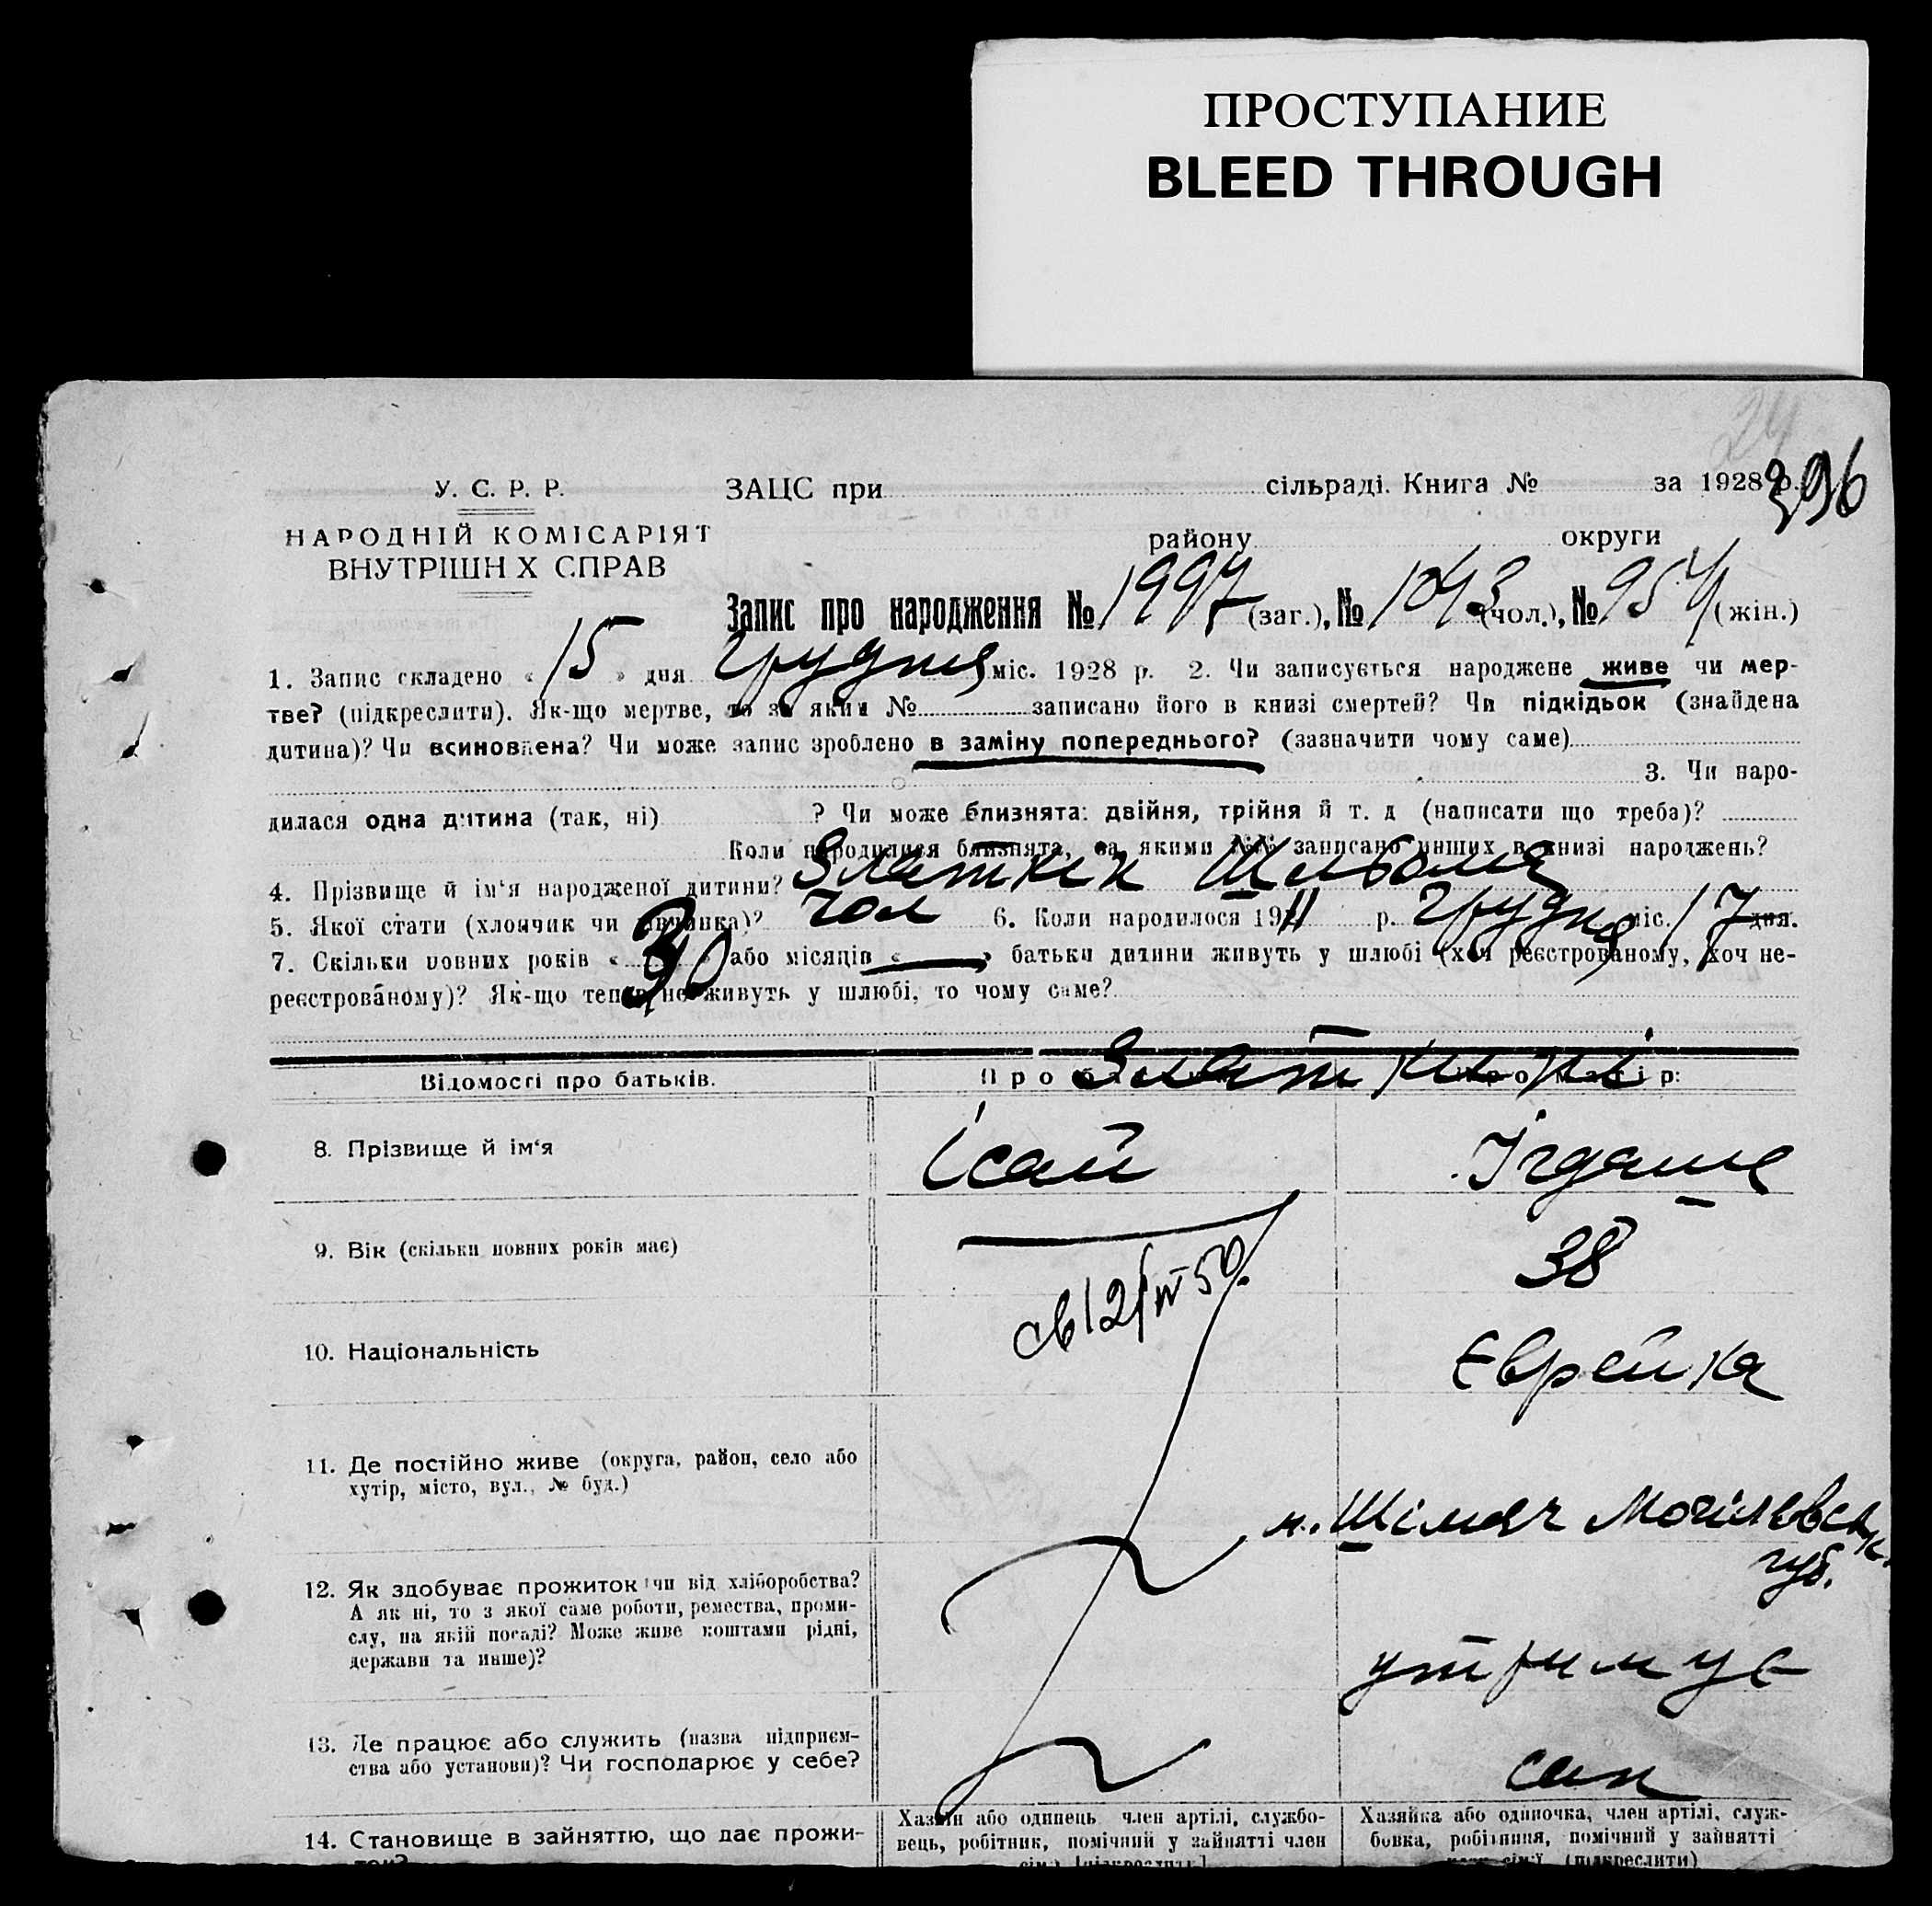 ПРОСТУПАНИЕ
BLEED THROUGH
24
396
У. С. Р. Р.
ЗАЦС при сільраді. Книга № за 1928 р.
НАРОДНІЙ КОМІСАРІЯТ
ВНУТРІШН Х СПРАВ
району округи
Запис про народження № 1997 (заг.), № 1043 (чол.), № 954 (жін.)
1. Запис складено « 15 » дня грудня міс. 1928 р. 2. Чи записується народжене живе чи мер-
тве? (підкреслити). Як-що мертве, то за яким № записано його в книзі смертей? Чи підкідьок (знайдена
дитина)? Чи всиновлена? Чи може запис зроблено в заміну попереднього? (зазначити чому саме)
3. Чи наро-
дилася одна дитина (так, ні) ? Чи може близнята: двійня, трійня й т. д (написати що треба)?
Коли народилися близнята, за якими №№ записано инших в книзі народжень?
4. Прізвище й ім‘я народженої дитини? Златкин
5. Якої стати (хлопчик чи дівчинка)? чол 6. Коли народилося 1911 р. грудня міс. 17 дня.
7. Скільки повних років « » або місяців « — » батьки дитини живуть у шлюбі (хоч реєстрованому, хоч не-
реєстрованому)? Як-що тепер не живуть у шлюбі, то чому саме?
30
Відомості про батьків. Про батька: Про матір:
Златкини
8. Прізвище й ім‘я Ісай
9. Вік (скільки повних років має) 38
10. Національність Єврейка
11. Де постійно живе (округа, район, село або
хутір, місто, вул., № буд.)
м. Шімяч Могілевськ.
губ.
12. Як здобуває прожиток чи від хліборобства?
А як ні, то з якої саме роботи, ремества, проми-
слу, на якій посаді? Може живе коштами рідні,
держави та инше)?
утримує
13. Де працює або служить (назва підприєм-
ства або установи)? Чи господарює у себе?
син
14. Становище в зайняттю, що дає прожи-
ток?
Хазяїн або одинець член артілі, службо-
вець, робітник, помічний у зайнятті член
сім'ї [підкреслити]
Хазяйка або одиночка, член артілі, служ-
бовка, робітниця, помічний у зайнятті
член сім'ї (підкреслити)